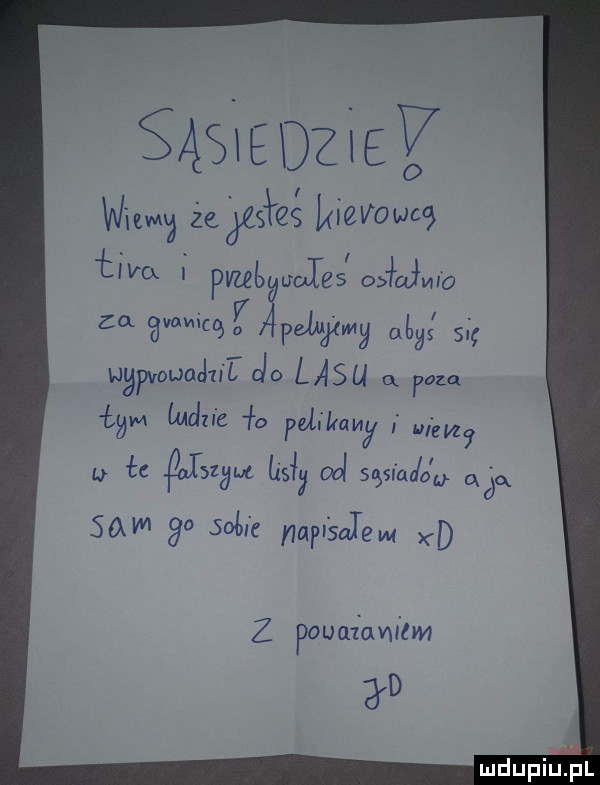 SĄSIEDZIE!
Wiemy że jesteś kierowcą
tira i przebywałeś ostatnio
za granicą! Apelujemy abyś się
wyprowadził do LASU a poza
tym ludzie to pelikany i wierzą
w te fałszywe listy od sąsiadów a ja
sam go sobie napisałem xD
Z poważaniem
JD
mdupiu.pl